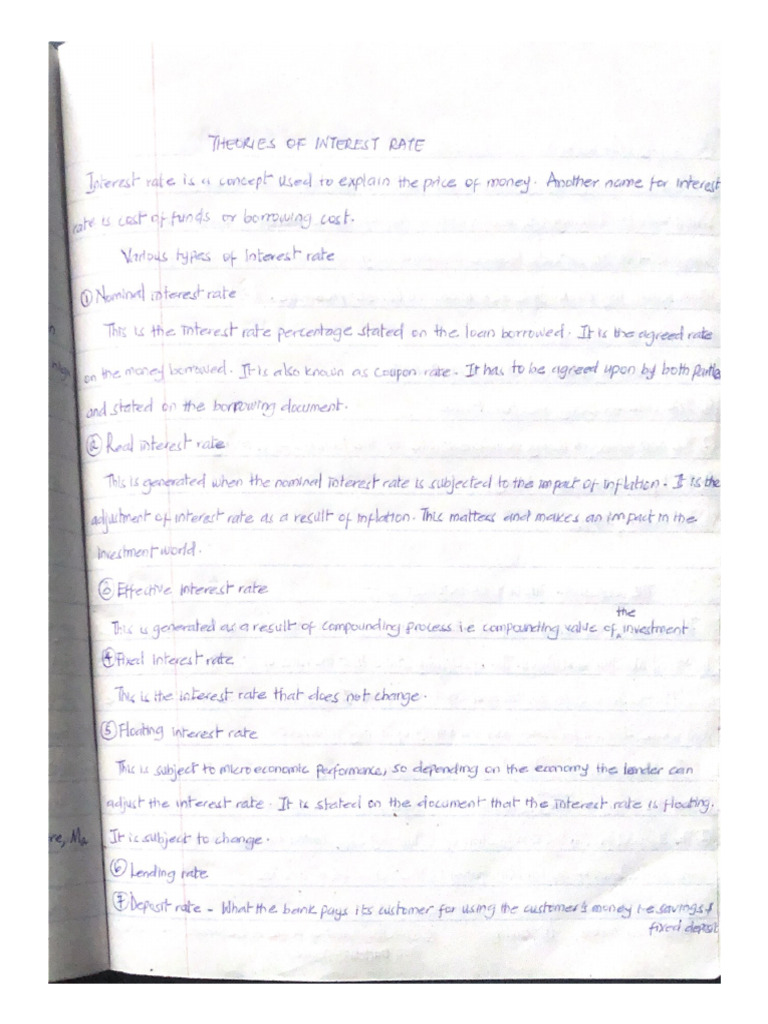 THEORIES OF INTEREST RATE
Interest rate is a concept used to explain the price of money. Another name for interest
rate is cost of funds or borrowing cost.
Various types of interest rate
① Nominal interest rate
This is the interest rate percentage stated on the loan borrowed. It is the agreed rate
on the money borrowed. It is also known as coupon rate. It has to be agreed upon by both partie
and stated on the borrowing document.
② Real interest rate
This is generated when the nominal interest rate is subjected to the impact of inflation. It is the
adjustment of interest rate as a result of inflation. This matters and makes an impact in the
investment world.
③ Effective interest rate
This is generated as a result of compounding process i.e compounding value of the investment
④ Fixed interest rate
This is the interest rate that does not change.
⑤ Floating interest rate
This is subject to micro economic performance, so depending on the economy the lender can
adjust the interest rate. It is stated on the document that the interest rate is floating.
It is subject to change.
⑥ Lending rate
⑦ Deposit rate - What the bank pays its customer for using the customer's money i.e savings &
fixed deposit